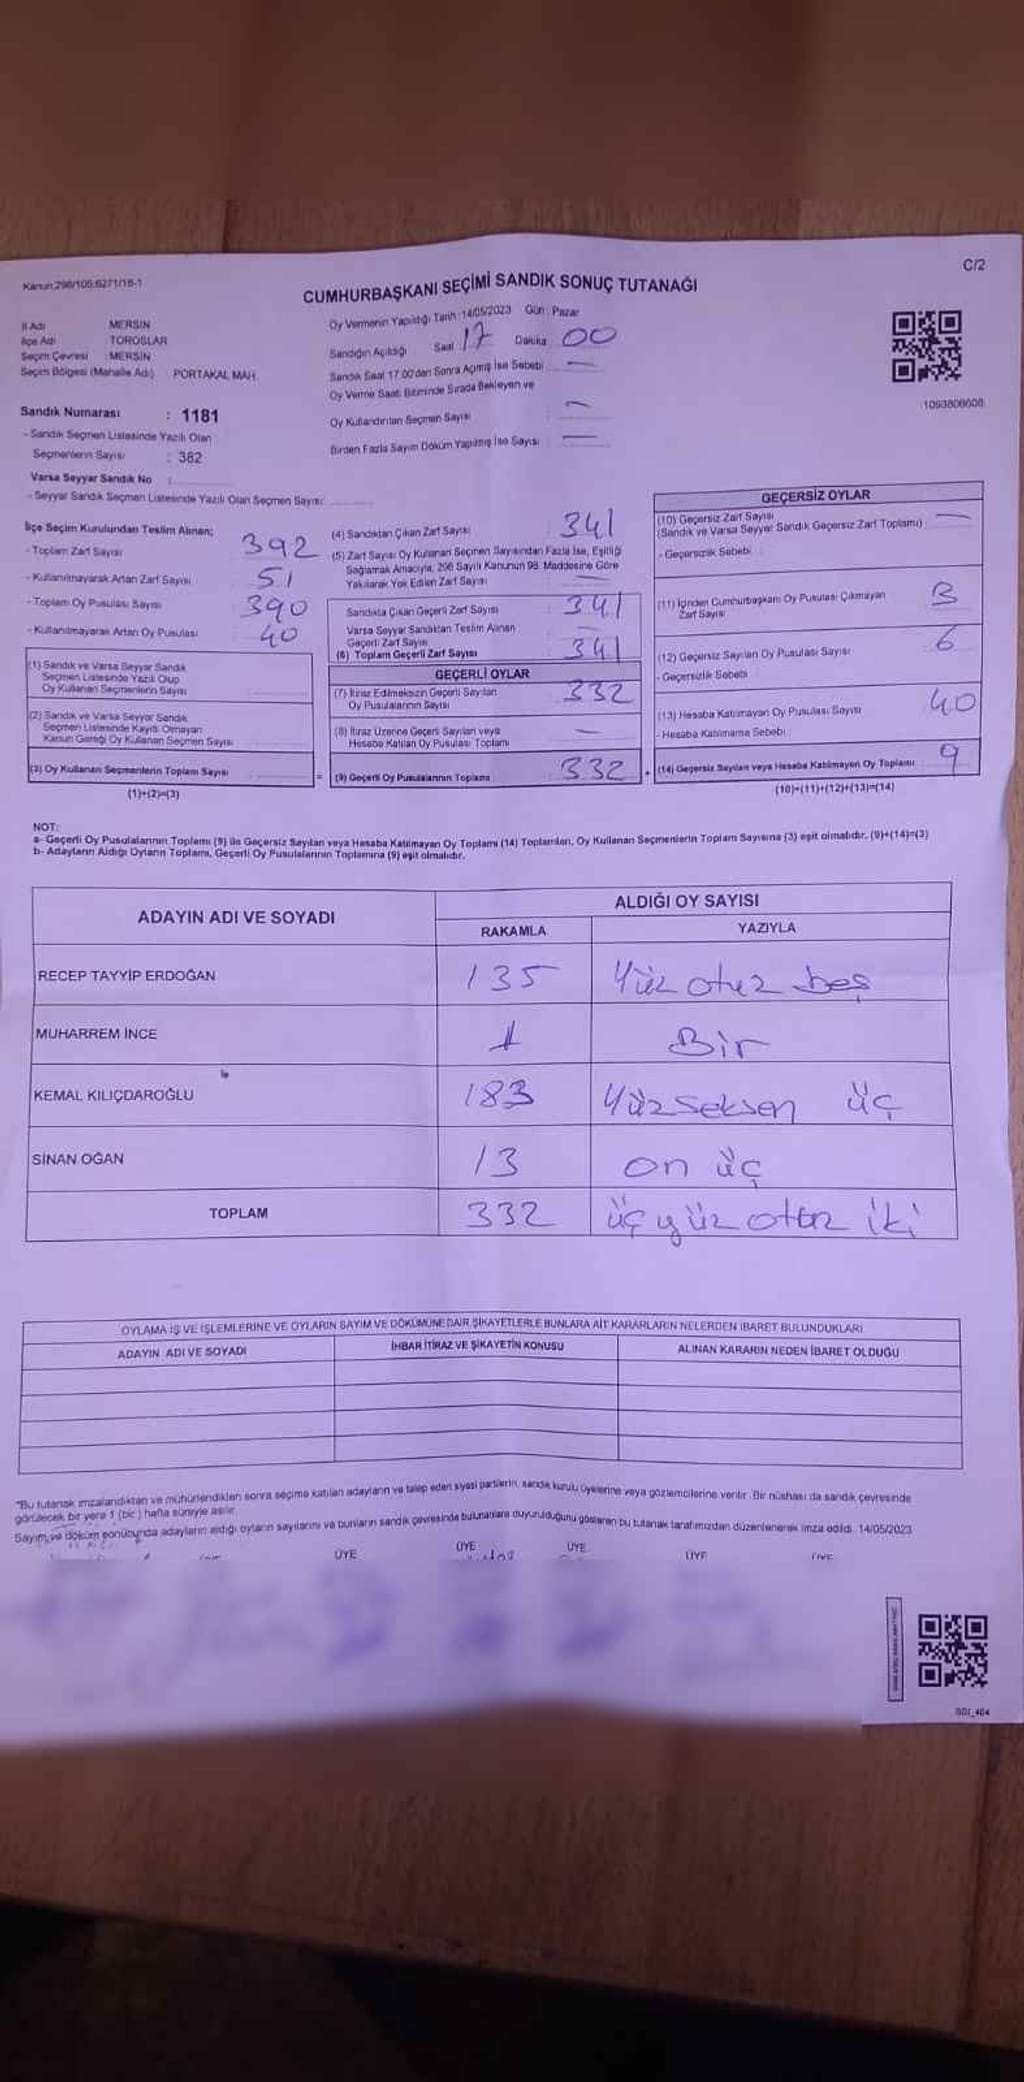 C/2
Kanun:298/105;6271/18-1
CUMHURBAŞKANI SEÇİMİ SANDIK SONUÇ TUTANAĞI
İl Adı MERSİN
İlçe Adı TOROSLAR
Seçim Çevresi : MERSİN
Seçim Bölgesi (Mahalle Adı) PORTAKAL MAH.
Sandık Numarası : 1181
- Sandık Seçmen Listesinde Yazılı Olan
Seçmenlerin Sayısı : 382
Varsa Seyyar Sandık No :
- Seyyar Sandık Seçmen Listesinde Yazılı Olan Seçmen Sayısı:
Oy Vermenin Yapıldığı Tarih :14/05/2023 Gün : Pazar
Sandığın Açıldığı Saat 17 Dakika 00
Sandık Saat 17:00'dan Sonra Açımış İse Sebebi : —
Oy Verme Saati Bitiminde Sırada Bekleyen ve
Oy Kullandırılan Seçmen Sayısı : —
Birden Fazla Sayım Döküm Yapılmış İse Sayısı : —
1093806608
İlçe Seçim Kurulundan Teslim Alınan;
- Toplam Zarf Sayısı : 392
- Kullanılmayarak Artan Zarf Sayısı : 51
- Toplam Oy Pusulası Sayısı : 390
- Kullanılmayarak Artan Oy Pusulası : 40
(1) Sandık ve Varsa Seyyar Sandık
Seçmen Listesinde Yazılı Olup
Oy Kullanan Seçmenlerin Sayısı
(2) Sandık ve Varsa Seyyar Sandık
Seçmen Listesinde Kayıtlı Olmayan
Kanun Gereği Oy Kullanan Seçmen Sayısı
(3) Oy Kullanan Seçmenlerin Toplam Sayısı
(1)+(2)=(3)
(4) Sandıktan Çıkan Zarf Sayısı : 341
(5) Zarf Sayısı Oy Kullanan Seçmen Sayısından Fazla İse, Eşitliği
Sağlamak Amacıyla, 298 Sayılı Kanunun 98. Maddesine Göre
Yakılarak Yok Edilen Zarf Sayısı : —
Sandıkta Çıkan Geçerli Zarf Sayısı : 341
Varsa Seyyar Sandıktan Teslim Alınan
Geçerli Zarf Sayısı : —
(6) Toplam Geçerli Zarf Sayısı : 341
GEÇERLİ OYLAR
(7) İtiraz Edilmeksizin Geçerli Sayılan
Oy Pusulalarının Sayısı : 332
(8) İtiraz Üzerine Geçerli Sayılan veya
Hesaba Katılan Oy Pusulası Toplamı : —
(9) Geçerli Oy Pusulalarının Toplamı : 332
GEÇERSİZ OYLAR
(10) Geçersiz Zarf Sayısı
(Sandık ve Varsa Seyyar Sandık Geçersiz Zarf Toplamı) : —
- Geçersizlik Sebebi :
(11) İçinden Cumhurbaşkanı Oy Pusulası Çıkmayan
Zarf Sayısı : 3
(12) Geçersiz Sayılan Oy Pusulası Sayısı : 6
- Geçersizlik Sebebi
(13) Hesaba Katılmayan Oy Pusulası Sayısı 40
- Hesaba Katılmama Sebebi :
(14) Geçersiz Sayılan veya Hesaba Katılmayan Oy Toplamı : 9
(10)+(11)+(12)+(13)=(14)
NOT:
a- Geçerli Oy Pusulalarının Toplamı (9) ile Geçersiz Sayılan veya Hesaba Katılmayan Oy Toplamı (14) Toplamları, Oy Kullanan Seçmenlerin Toplam Sayısına (3) eşit olmalıdır. (9)+(14)=(3)
b- Adayların Aldığı Oyların Toplamı, Geçerli Oy Pusulalarının Toplamına (9) eşit olmalıdır.
ADAYIN ADI VE SOYADI ALDIĞI OY SAYISI
RAKAMLA YAZIYLA
RECEP TAYYİP ERDOĞAN 135 Yüz otuz beş
MUHARREM İNCE 1 Bir
KEMAL KILIÇDAROĞLU 183 Yüzseksen üç
SİNAN OĞAN 13 on üç
TOPLAM 332 üçyüz otuz iki
OYLAMA İŞ VE İŞLEMLERİNE VE OYLARIN SAYIM VE DÖKÜMÜNE DAİR ŞİKAYETLERLE BUNLARA AİT KARARLARIN NELERDEN İBARET BULUNDUKLARI
ADAYIN ADI VE SOYADI İHBAR İTİRAZ VE ŞİKAYETİN KONUSU ALINAN KARARIN NEDEN İBARET OLDUĞU
*Bu tutanak imzalandıktan ve mühürlendikten sonra seçime katılan adayların ve talep eden siyasi partilerin, sandık kurulu üyelerine veya gözlemcilerine verilir. Bir nüshası da sandık çevresinde
görülecek bir yere 1 (bir) hafta süreyle asılır.
Sayım ve döküm sonucunda adayların aldığı oyların sayılarını ve bunların sandık çevresinde bulunanlara duyurulduğunu gösteren bu tutanak tarafımızdan düzenlenerek imza edildi. 14/05/2023
ÜYE ÜYE ÜYE ÜYE ÜYE